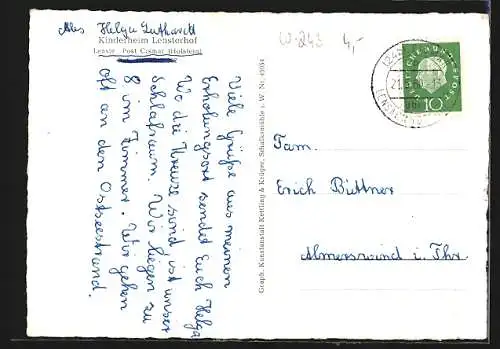 Abs Helga Luthardt
Kinderheim Lensterhof
Lenste Post Cismar (Holstein)
W-243 4,-
Viele Grüße aus meinen
Erholungsort sendet Euch Helga
Wo die Kreuze sind, ist unser
Schlafraum. Wir liegen zu
8 im Zimmer. Wir gehen
oft an den Ostseestrand.
Graph. Kunstanstalt Kettling & Krüger, Schalksmühle i. W. Nr.
DEUTSCHE BUNDESPOST
10
Fam.
Erich Büttner
Almerswind i. Thr.